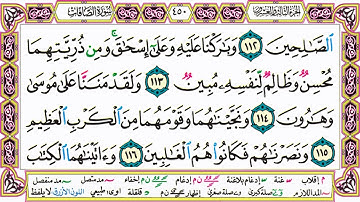 الجزء الثالث والعشرون ٤٥٠ سورة الصافات
ٱلصَّٰلِحِينَ ١١٢ وَبَٰرَكْنَا عَلَيْهِ وَعَلَىٰٓ إِسْحَٰقَ ۚ وَمِن ذُرِّيَّتِهِمَا
مُحْسِنٌ وَظَالِمٌ لِّنَفْسِهِۦ مُبِينٌ ١١٣ وَلَقَدْ مَنَنَّا عَلَىٰ مُوسَىٰ
وَهَٰرُونَ ١١٤ وَنَجَّيْنَٰهُمَا وَقَوْمَهُمَا مِنَ ٱلْكَرْبِ ٱلْعَظِيمِ
١١٥ وَنَصَرْنَٰهُمْ فَكَانُوا۟ هُمُ ٱلْغَٰلِبِينَ ١١٦ وَءَاتَيْنَٰهُمَا ٱلْكِتَٰبَ